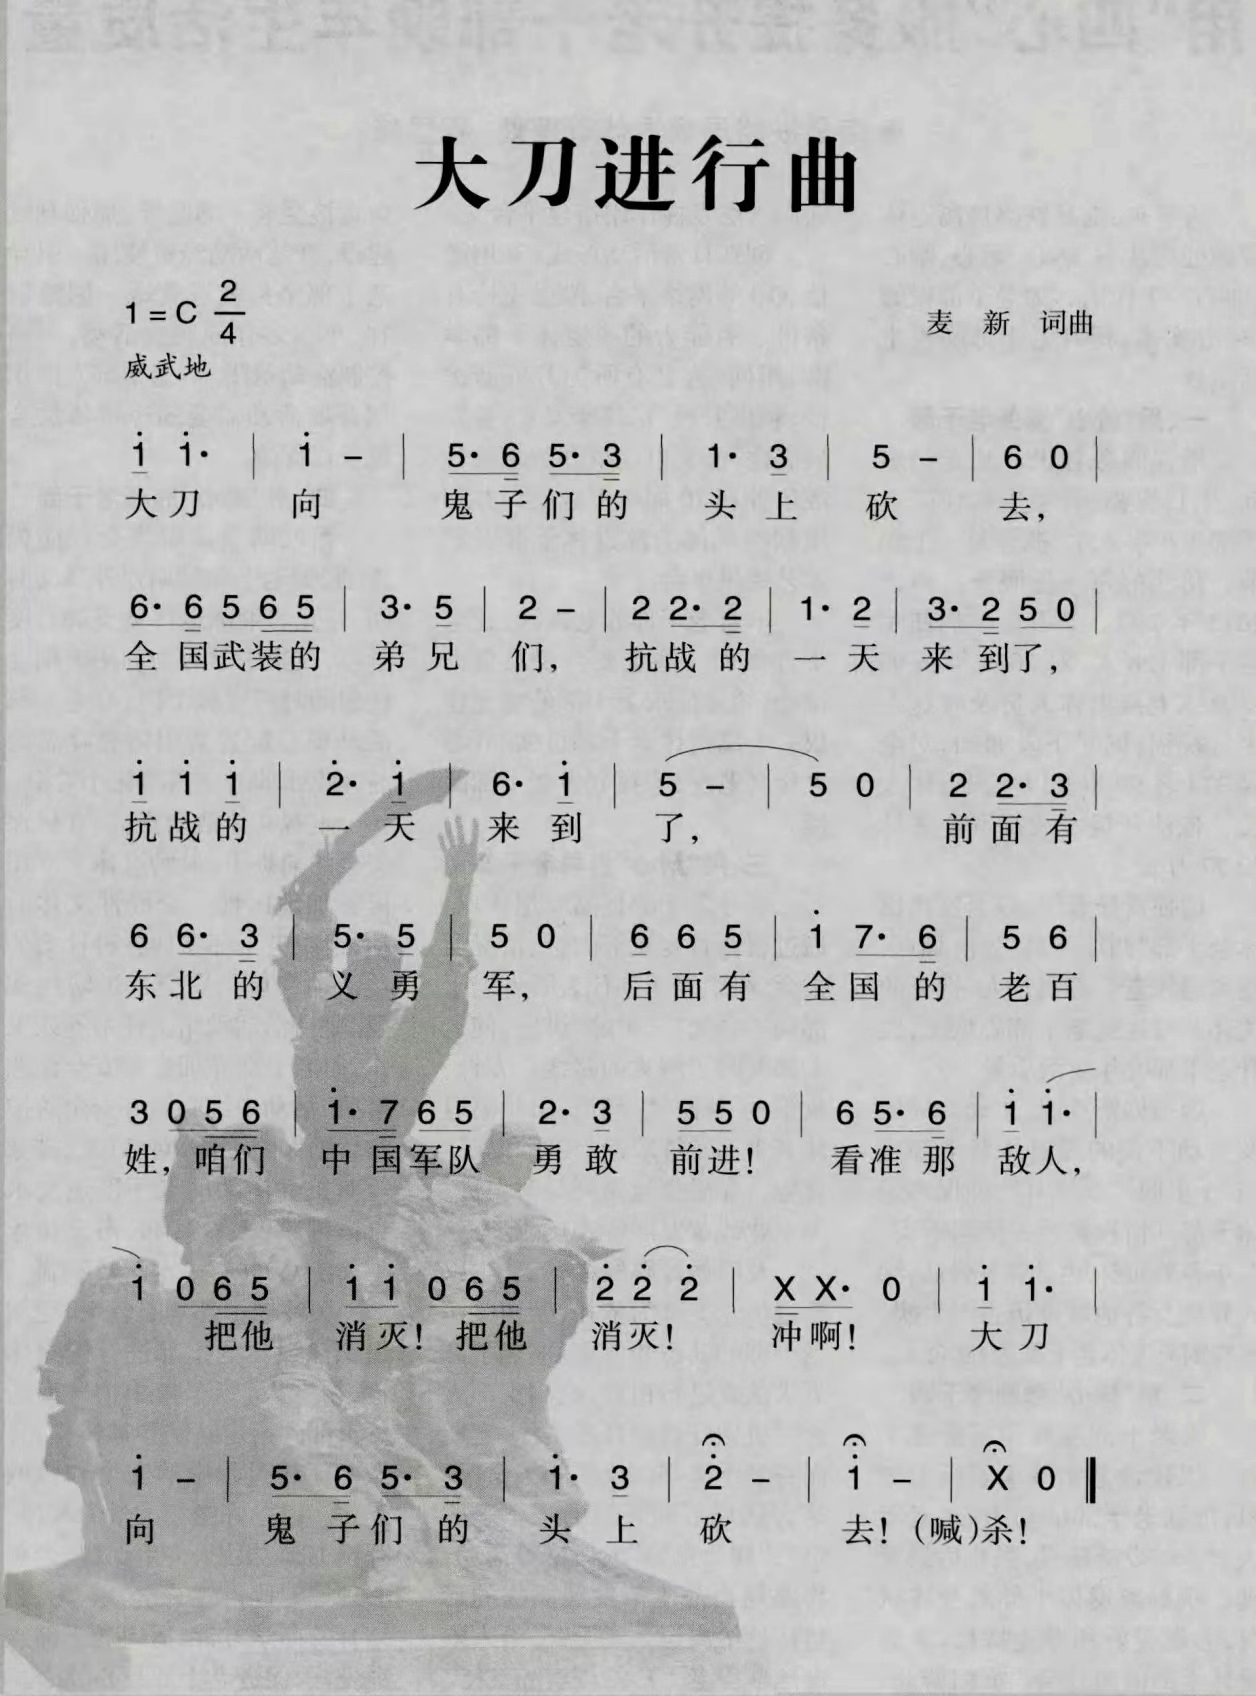 大刀进行曲
1=C 2/4
麦 新 词曲
威武地
i i· | i - | 5· 6 5· 3 | 1· 3 | 5 - | 6 0 |
大刀 向 鬼子们的 头上 砍 去，
6· 6 5 6 5 | 3· 5 | 2 - | 2 2· 2 | 1· 2 | 3· 2 5 0 |
全国武装的 弟兄 们，抗战的 一天来到了，
i i i | 2· i | 6· i | 5 - | 5 0 | 2 2· 3 |
抗战的 一天 来到 了， 前面有
6 6· 3 | 5· 5 | 5 0 | 6 6 5 | i 7· 6 | 5 6 |
东北的 义勇 军， 后面有 全国的 老百
3 0 5 6 | i· 7 6 5 | 2· 3 | 5 5 0 | 6 5· 6 | i i· |
姓，咱们 中国军队 勇敢 前进！ 看准那 敌人，
i 0 6 5 | i i 0 6 5 | 2 2 2 | X X· 0 | i i· |
把他 消灭！把他 消灭！ 冲啊！ 大刀
i - | 5· 6 5· 3 | i· 3 | 2 - | i - | X 0 ‖
向 鬼子们的 头上 砍 去！（喊）杀！